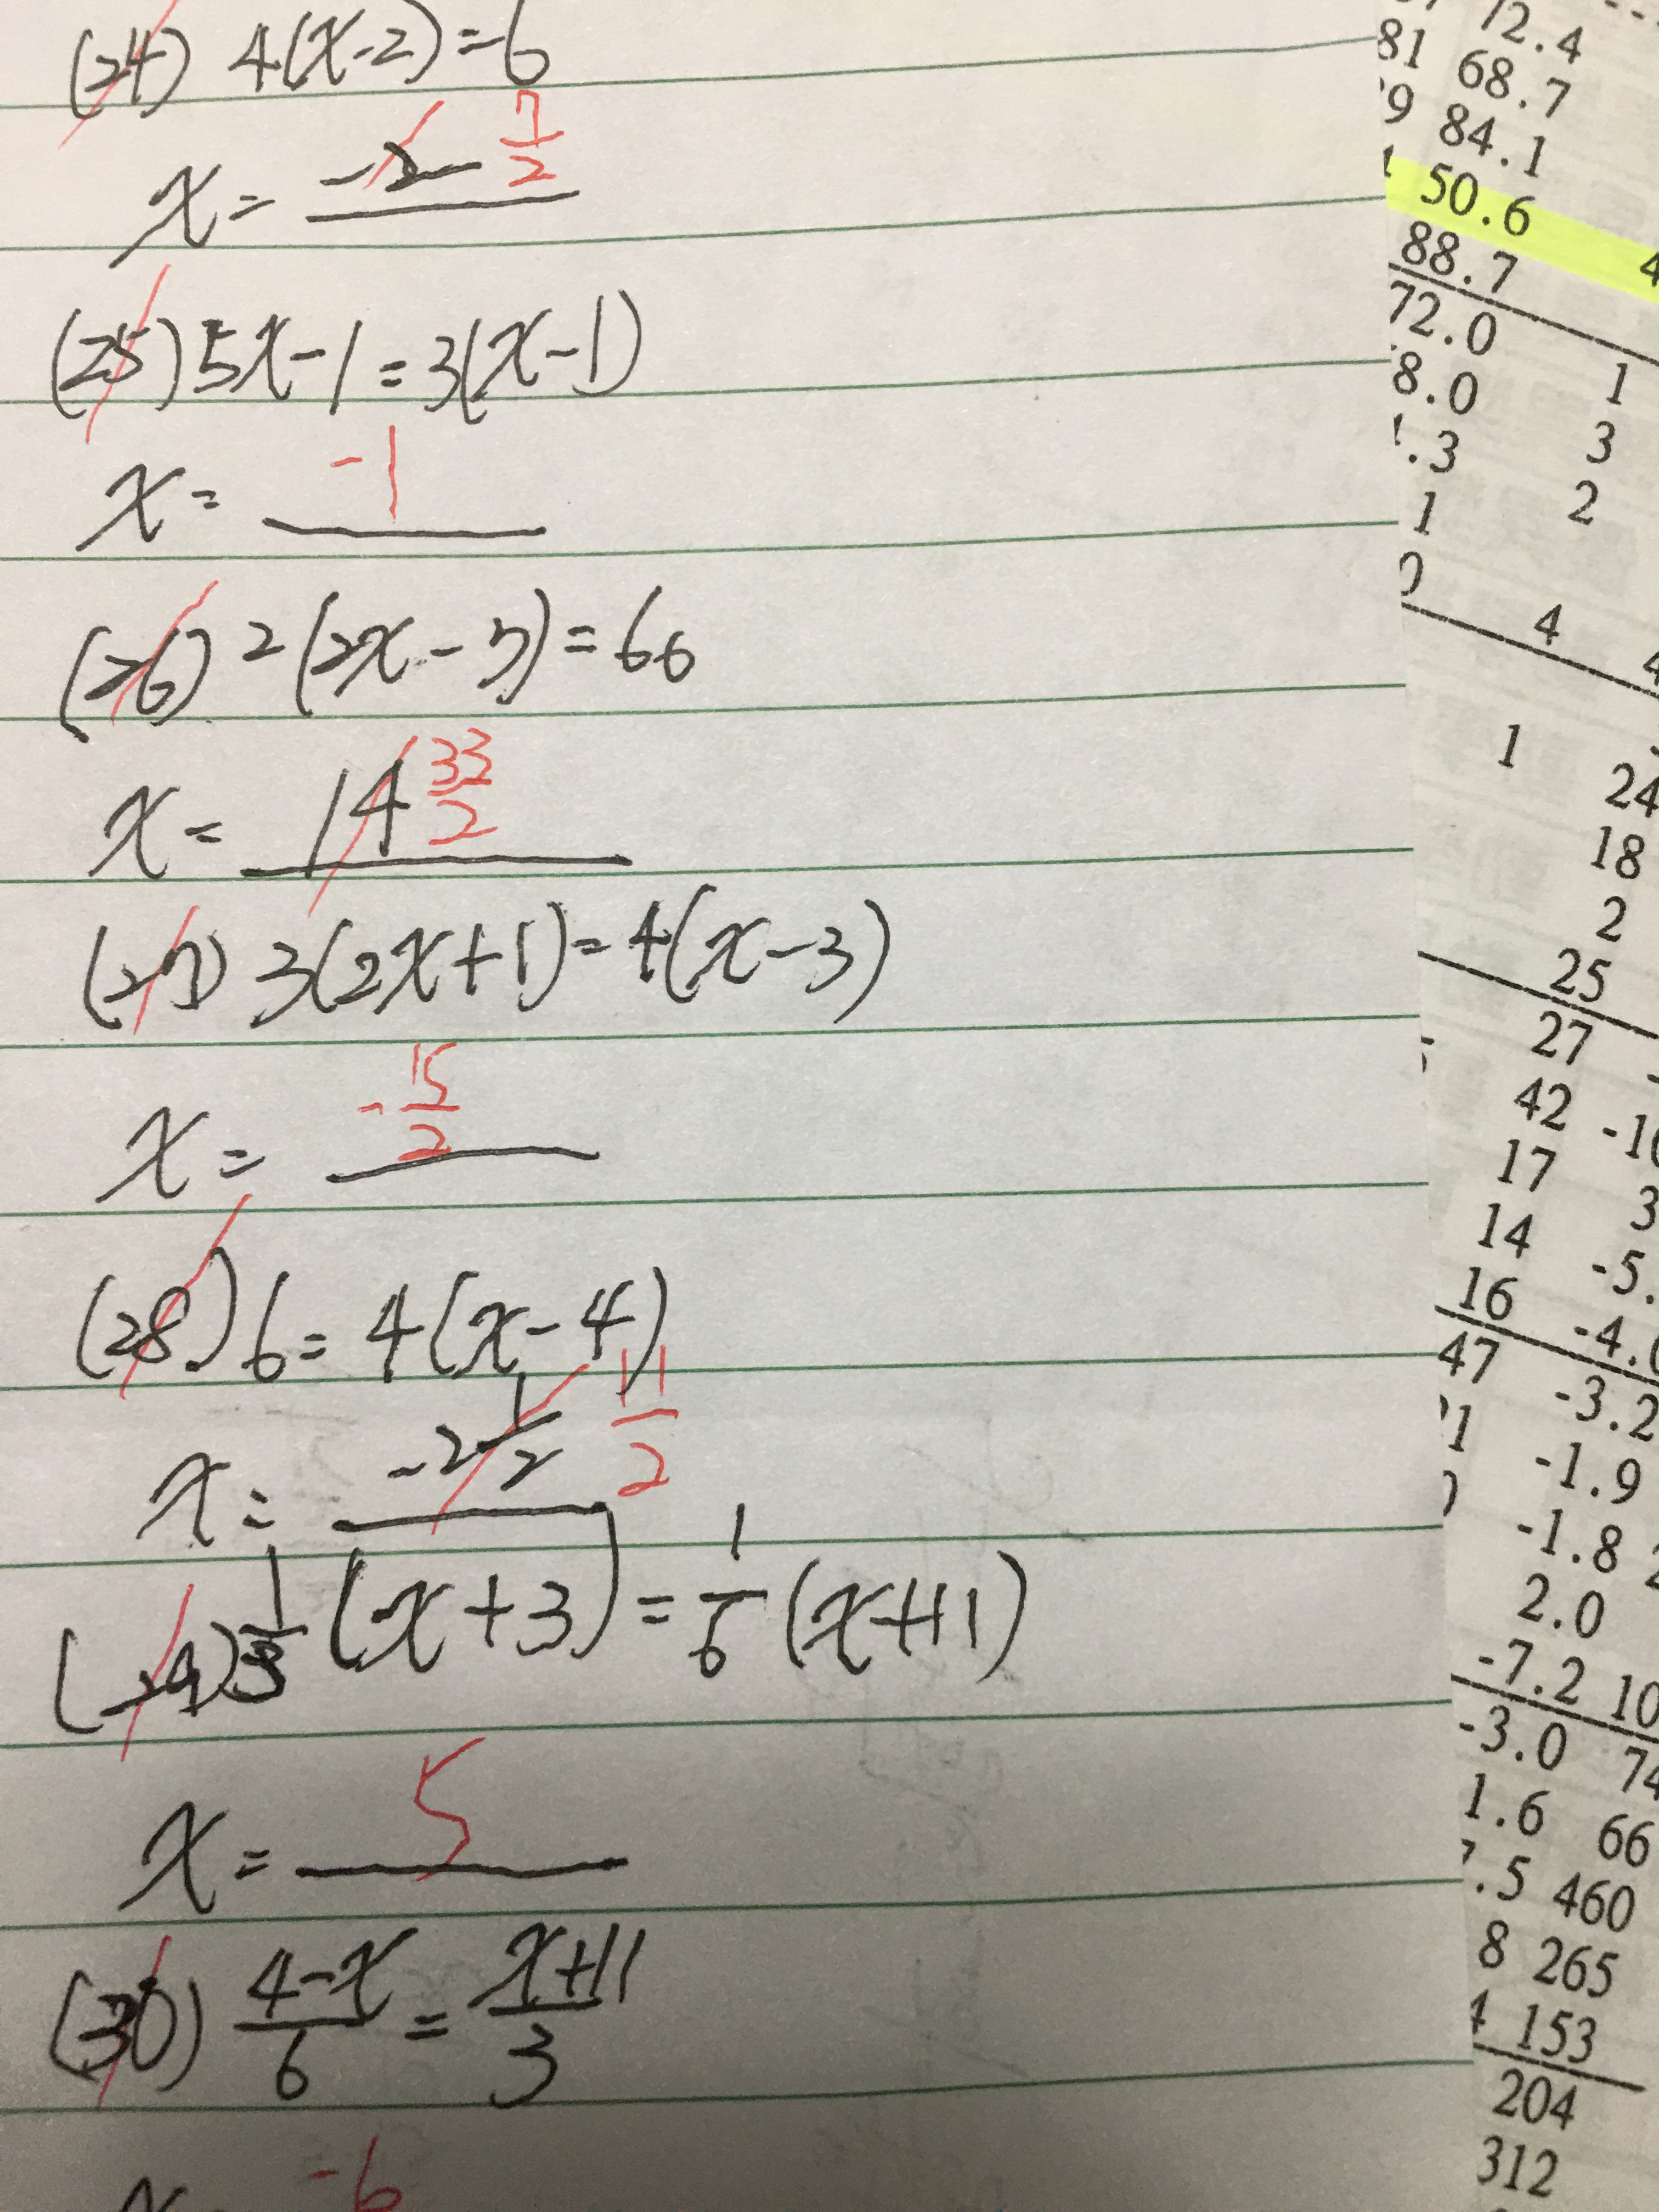 (24) 4(x-2)=-6
x= -2 7/2
(25) 5x-1=3(x-1)
x= -1
(26) 2(2x-7)=66
x= 14 33/2
(27) 3(2x+1)=4(x-3)
x= -15/2
(28) 6=4(x-4)
x= -2 1/2 11/2
(29) 1/3 (x+3)=1/6 (x+11)
x= 5
(30) 4-x/6 = x+11/3
-6
72.4
81 68.7
9 84.1
50.6 4
88.7
72.0
8.0 1
.3 3
1 2
4 4
1 24
18
2
25
27
42
17 3
14 -5.
16 -4.
47 -3.2
1 -1.9
-1.8
2.0
-7.2 10
-3.0 74
1.6 66
.5 460
8 265
4 153
204
312